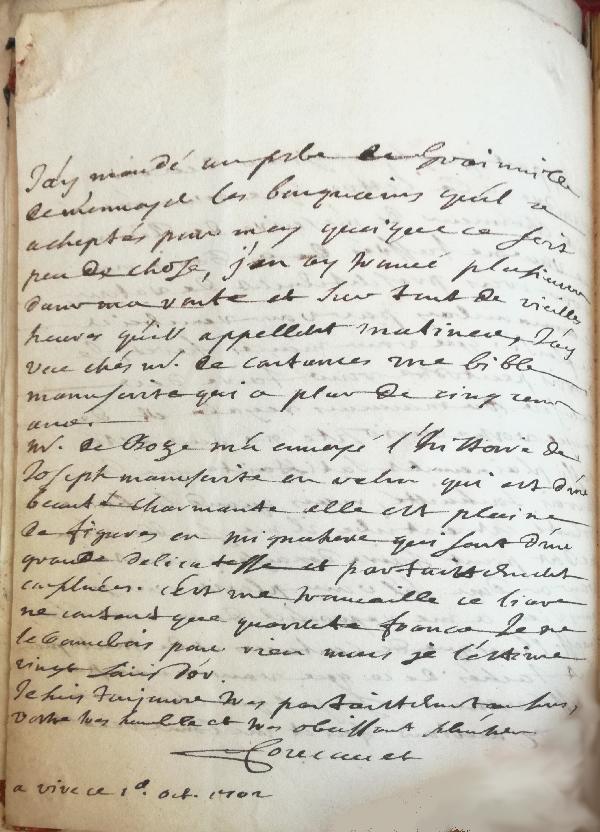 J'ay mandé au prbe de Grainville
de m'envoyé les bouquains qu'il a
acheptés pour moy quoique ce soit
peu de chose, j'en ay trouvé plusieurs
dans ma route et sur tout de vieilles
heures qu'ils appellent matinees, J'ay
veu chés mr. de une bible
manuscrite qui a plus de cinq cens
ans.
mr. de Boze m'a envoyé l'histoire de
Joseph manuscrite en velin qui est d'une
beauté charmante elle est pleine
de figures en mignature qui sont d'une
grande delicatesse et parfaittement
c'est une trouvaille ce livre
ne coutant que quarente francs Je ne
le pour rien mais je l'estime
vingt louis d'or.
Je suis toujours tres parfaittement a vous,
votre tres humble et tres obeissant
a vire ce 1d. oct. 1702